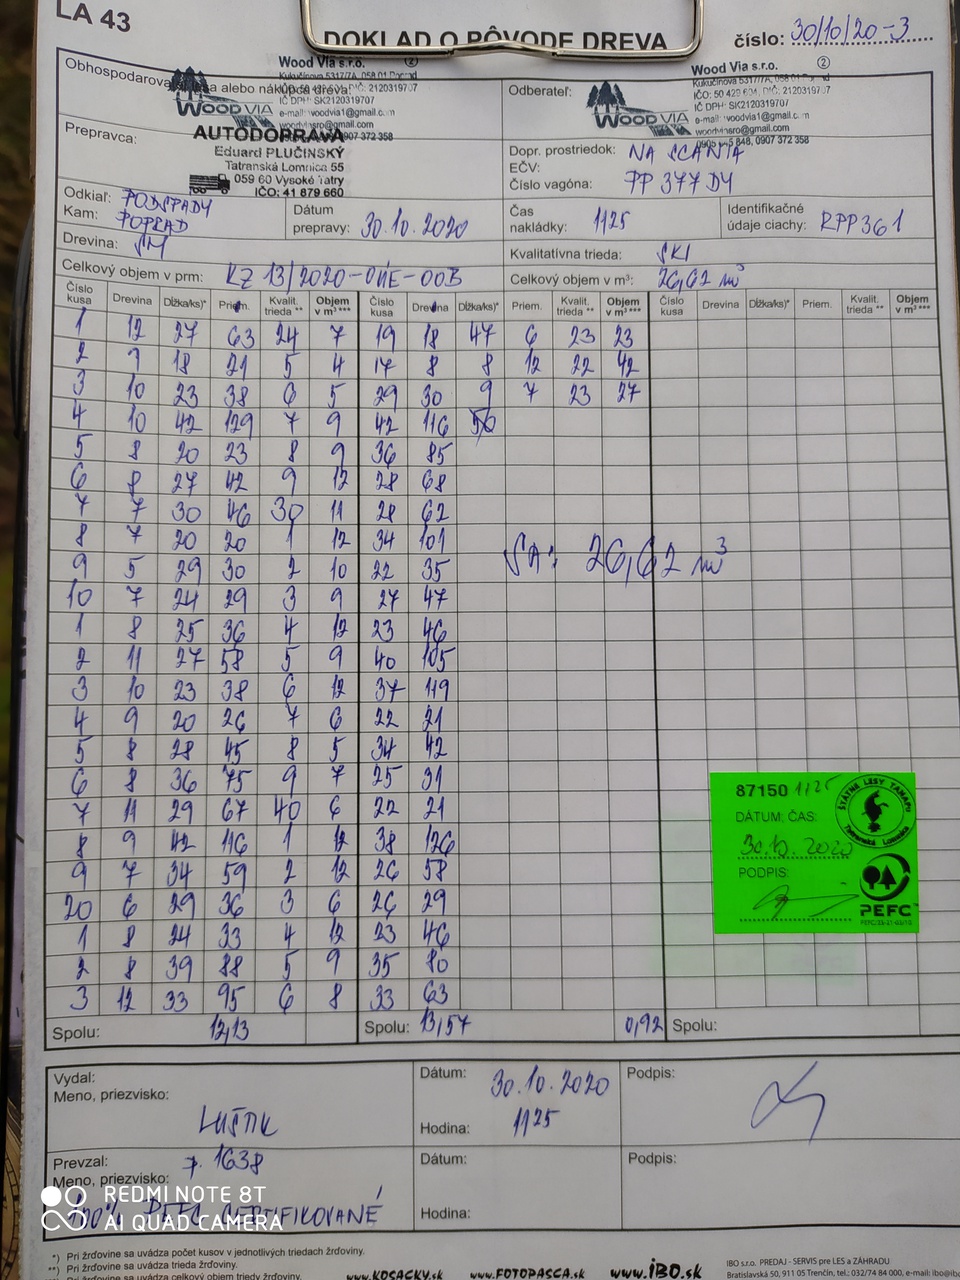 LA 43
DOKLAD O PÔVODE DREVA
číslo: 30/10/20-3
Obhospodarova
sa alebo nákupca dreva:
Wood Via s.r.o. ②
Kukučínova 5317/7A, 058 01
DIČ: 2120319707
IČ DPH: SK2120319707
e-mail: woodvia1@gmail.com
woodviasro@gmail.com
0907 372 358
WOOD VIA
Odberateľ:
Wood Via s.r.o. ②
Kukučínova 5317/7A, 058 01
2120319707
IČ DPH: SK2120319707
e-mail: woodvia1@gmail.com
woodviasro@gmail.com
848, 0907 372 358
WOOD VIA
Prepravca:
AUTODOPRAVA
Eduard PLUČINSKÝ
Tatranská Lomnica 55
059 60 Vysoké Tatry
IČO: 41 879 660
Dopr. prostriedok: NA SCANIA
EČV:
Číslo vagóna: PP 377 DY
Odkiaľ: PODSPADY
Kam: POPRAD
Dátum prepravy: 30.10.2020
Čas nakládky: 1125
Identifikačné údaje ciachy: RPP361
Drevina: SM
Kvalitatívna trieda: SKI
Celkový objem v prm: KZ 13/2020-OÚE-OOB
Celkový objem v m³: 26,62 m³
Číslo kusa Drevina Dĺžka/ks)* Priem. Kvalit. trieda ** Objem v m³ *** Číslo kusa Drevina Dĺžka/ks)* Priem. Kvalit. trieda ** Objem v m³ *** Číslo kusa Drevina Dĺžka/ks)* Priem. Kvalit. trieda ** Objem v m³ ***
1 12 27 63 24 7 19 18 47 6 23 23
2 9 18 21 5 4 17 8 8 12 22 42
3 10 23 38 6 5 29 30 9 7 23 27
4 10 42 129 7 9 42 116 50
5 8 20 23 8 9 36 85
6 8 27 42 9 12 28 68
7 7 30 46 30 11 28 62
8 7 20 20 1 12 34 101
SA: 26,62 m³
9 5 29 30 2 10 22 35
10 7 24 29 3 9 27 47
1 8 25 36 4 12 23 46
2 11 27 58 5 9 40 105
3 10 23 38 6 12 37 119
4 9 20 26 7 6 22 21
5 8 28 45 8 5 34 42
6 8 36 75 9 7 25 31
7 11 29 67 40 6 22 21
8 9 42 116 1 12 38 126
9 7 34 59 2 12 26 58
20 6 29 36 3 6 26 29
1 8 24 33 4 12 23 46
2 8 39 88 5 9 35 80
3 12 33 95 6 8 33 63
Spolu: 12,13 Spolu: 13,57 0,92 Spolu:
87150 1125
DÁTUM, ČAS:
30.10.2020
PODPIS:
ŠTÁTNE LESY TANAPu
Tatranská Lomnica
PEFC
Vydal:
Meno, priezvisko:
LUŠTIK
Dátum: 30.10.2020
Hodina: 1125
Podpis:
Prevzal:
Meno, priezvisko:
7. 1638
100% PEFC CERTIFIKOVANÉ
Dátum:
Hodina:
Podpis:
REDMI NOTE 8T
AI QUAD CAMERA
*) Pri žrďovine sa uvádza počet kusov v jednotlivých triedach žrďoviny.
**) Pri žrďovine sa uvádza trieda žrďoviny.
Pri žrďovine sa uvádza celkový objem triedy žrďoviny.
www.KOSACKY.sk www.FOTOPASCA.sk www.iBO.sk
IBO s.r.o. PREDAJ - SERVIS pre LES a ZÁHRADU
Bratislavská 50, 911 05 Trenčín, tel.: 032/74 84 000, e-mail: ibo@